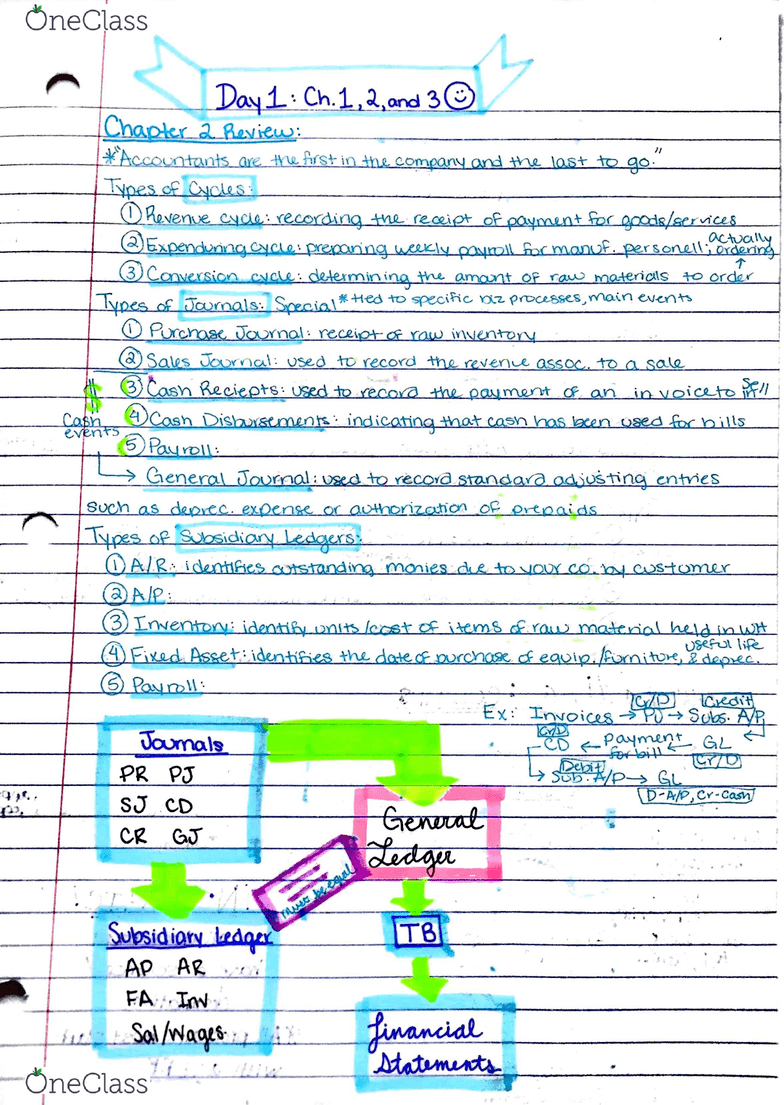 OneClass
Day 1: Ch. 1, 2, and 3
Chapter 2 Review:
*"Accountants are the first in the company and the last to go."
Types of Cycles:
① Revenue cycle: recording the receipt of payment for goods/services
② Expenduring cycle: preparing weekly payroll for manuf. personell; actually ordering
③ Conversion cycle: determining the amount of raw materials to order
Types of Journals: Special *tied to specific biz processes, main events
① Purchase Journal: receipt of raw inventory
② Sales Journal: used to record the revenue assoc. to a sale
$ ③ Cash Reciepts: used to record the payment of an invoice to sell
Cash events
④ Cash Disbursements: indicating that cash has been used for bills
⑤ Payroll:
General Journal: used to record standard adjusting entries
such as deprec. expense or authorization of prepaids
Types of Subsidiary Ledgers:
① A/R: identifies outstanding monies due to your co. by customer
② A/P:
③ Inventory: identify units/cost of items of raw material held in WH
④ Fixed Asset: identifies the date of purchase of equip./furniture, useful life & deprec.
⑤ Payroll:
Cr/D Credit
Ex: Invoices → PJ → Subs. A/P
Cr/D
CD ← payment for bill ← GL
Debit Cr/D
Sub. A/P → GL
D-A/P, Cr-Cash
Journals
PR PJ
SJ CD
CR GJ
General
Ledger
must be equal
Subsidiary Ledger
AP AR
FA Inv
Sal/Wages
TB
Financial
Statements
OneClass